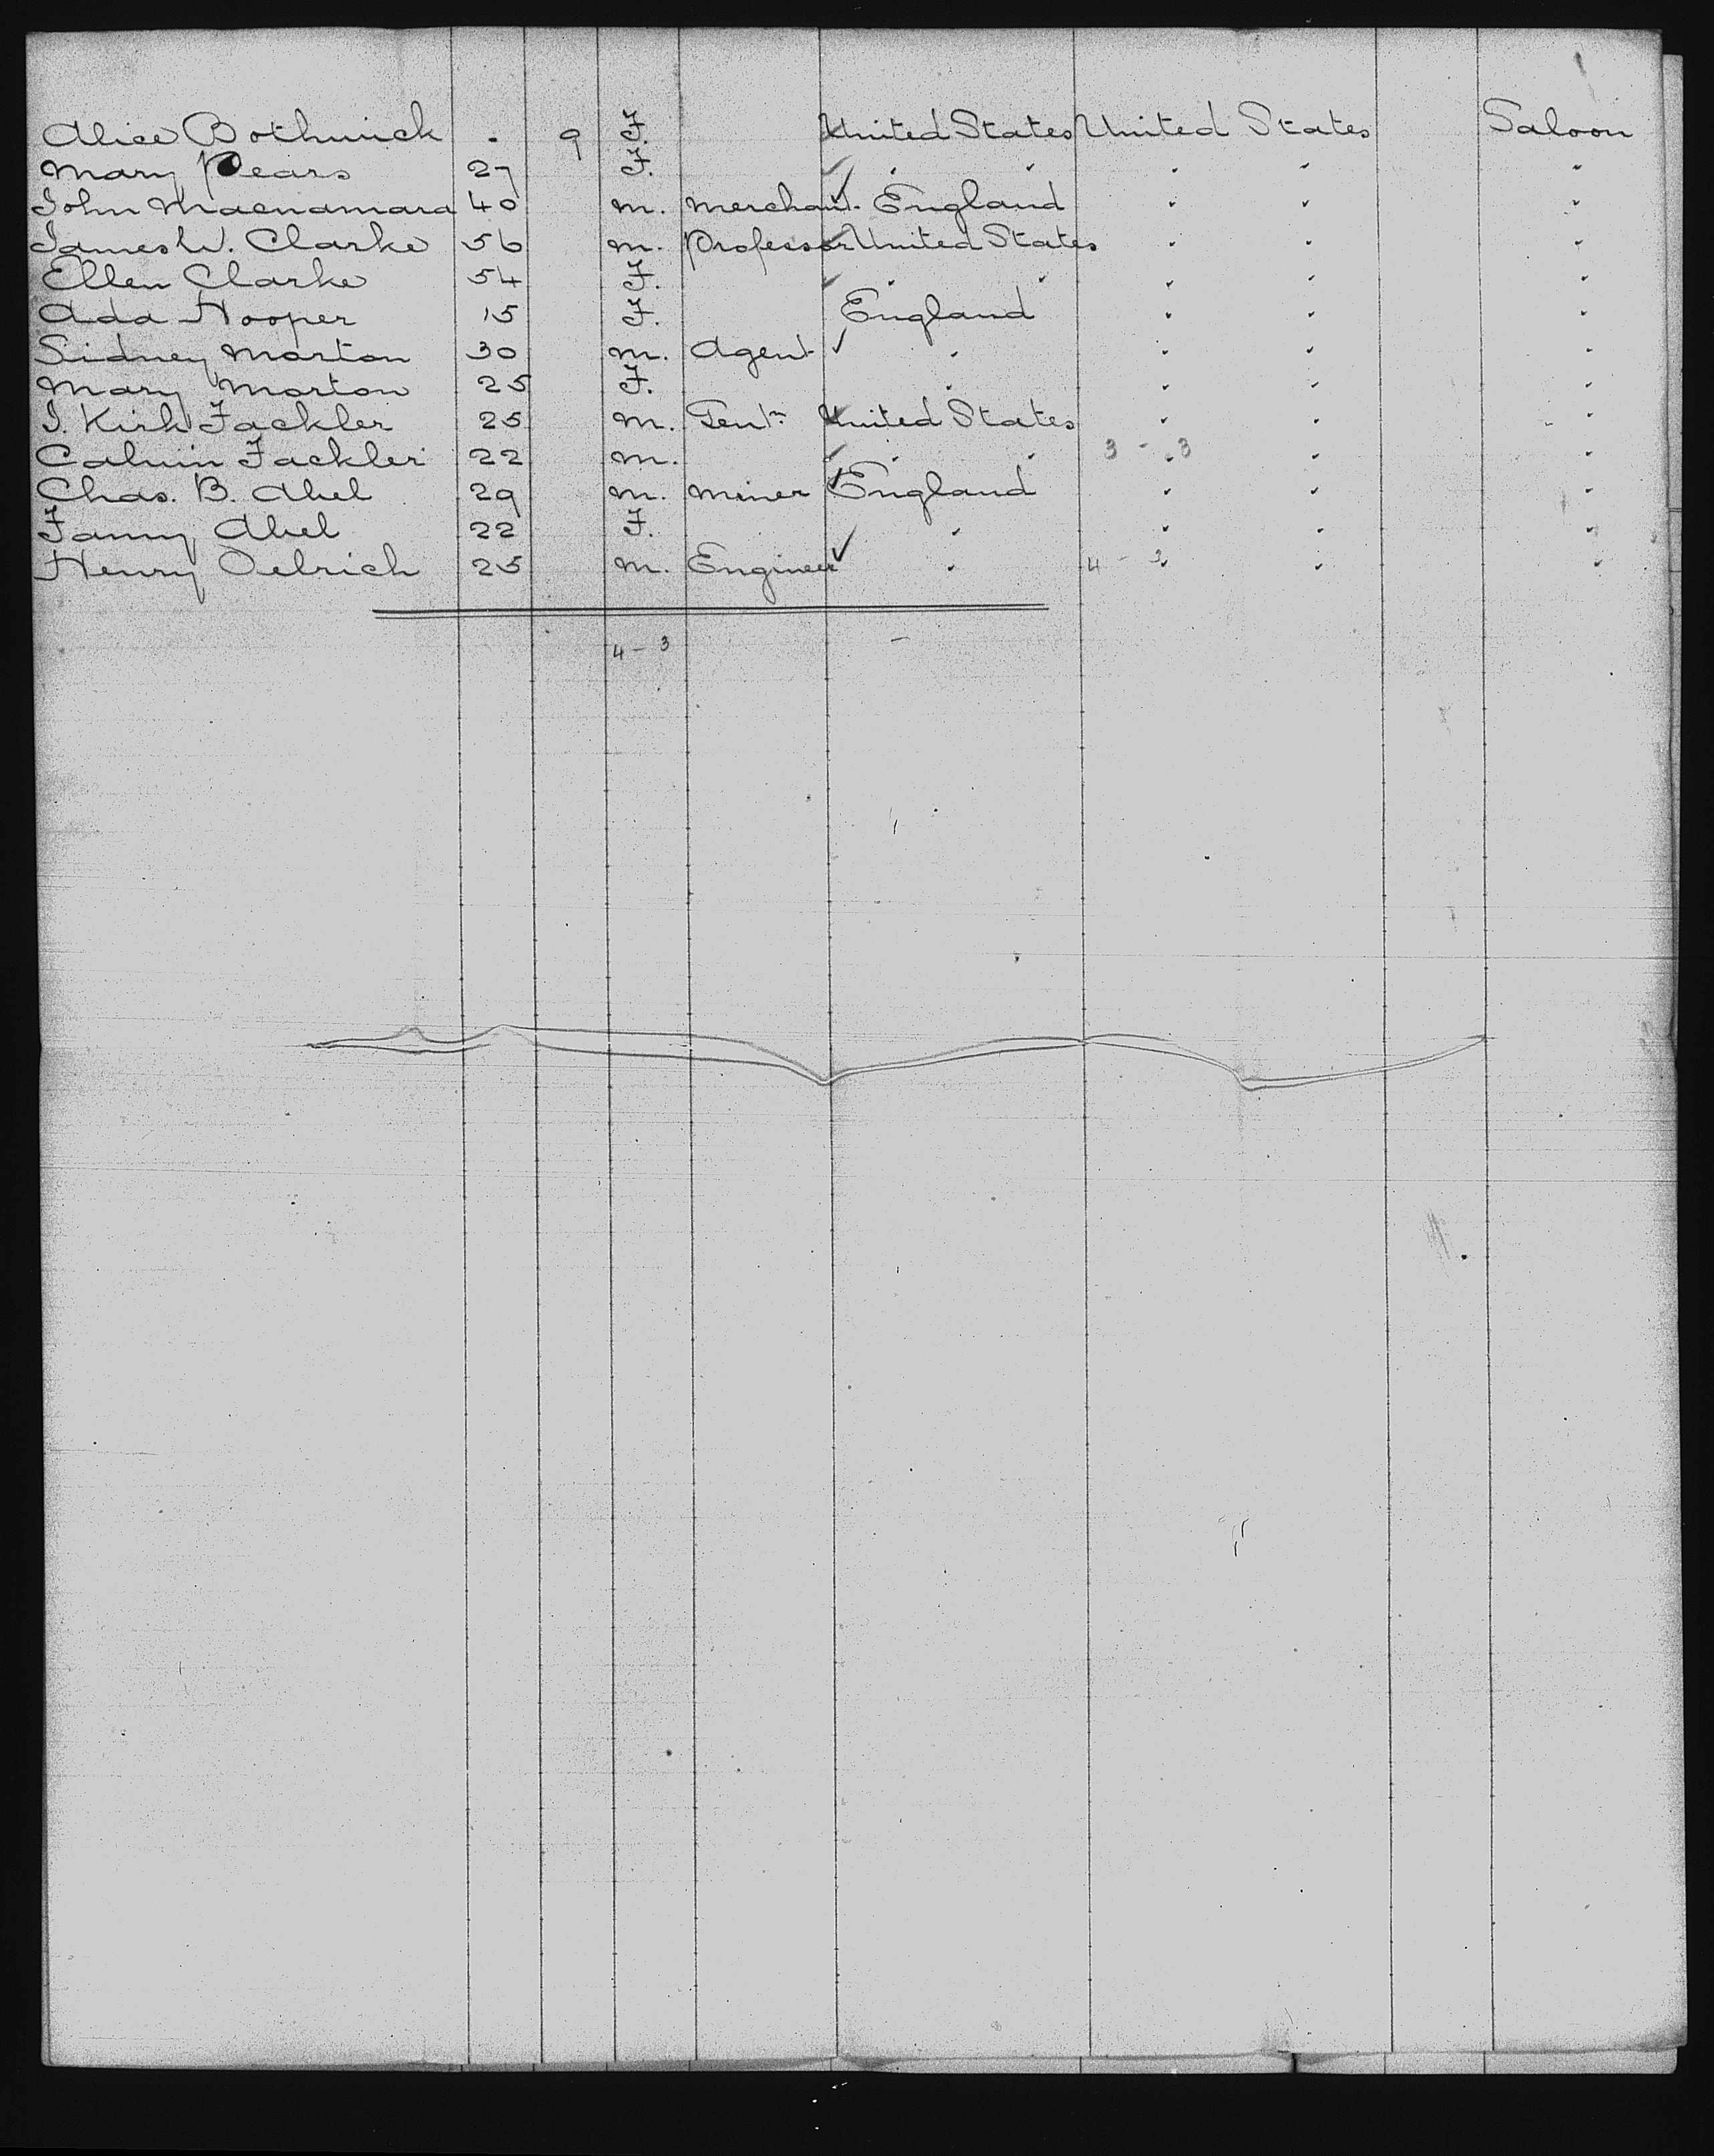 Alice Bothwick . 9 F. United States United States Saloon
Mary Pears 27 F. " " " " "
John Macnamara 40 M. Merchant England " " "
James W. Clarke 56 M. Professor United States " " "
Ellen Clarke 54 F. " " " " "
Ada Hooper 15 F. England " " "
Sidney Morton 30 M. Agent " " " "
Mary Morton 25 F. " " " "
J. Kirk Fackler 25 M. Gentn United States " " "
Calvin Fackler 22 M. " " 3 - 3 " " "
Chas. B. Abel 29 M. Miner England " " "
Fanny Abel 22 F. " " " "
Henry Oelrich 25 M. Engineer " 4 - 3 " " "
4 - 3